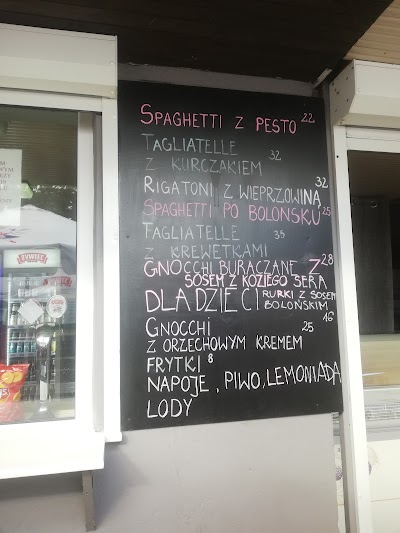 SPAGHETTI Z PESTO 22
TAGLIATELLE
Z KURCZAKIEM 32
RIGATONI Z WIEPRZOWINĄ 32
SPAGHETTI PO BOLOŃSKU 25
TAGLIATELLE 35
Z KREWETKAMI
GNOCCHI BURACZANE Z 28
SOSEM Z KOZIEGO SERA
DLA DZIECI RURKI Z SOSEM
BOLOŃSKIM 16
GNOCCHI 25
Z ORZECHOWYM KREMEM
FRYTKI 8
NAPOJE, PIWO, LEMONIADA
LODY
ŻYWIEC